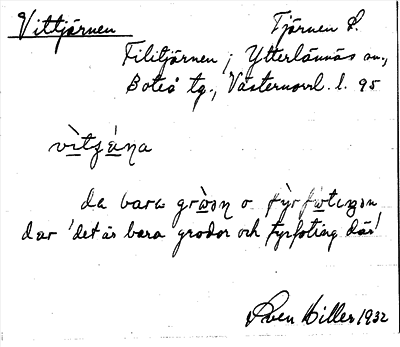 Vittjärnen Tjärnen S.
Filitjärnen; Ytterlännäs sn.,
Boteå tg., Västernorrl. l. 95
vìtʃána
da bara gròɷn o fỳrfɷtɩŋɷn
där 'det är bara grodor och fyrfoting där'
Sven Hiller 1932